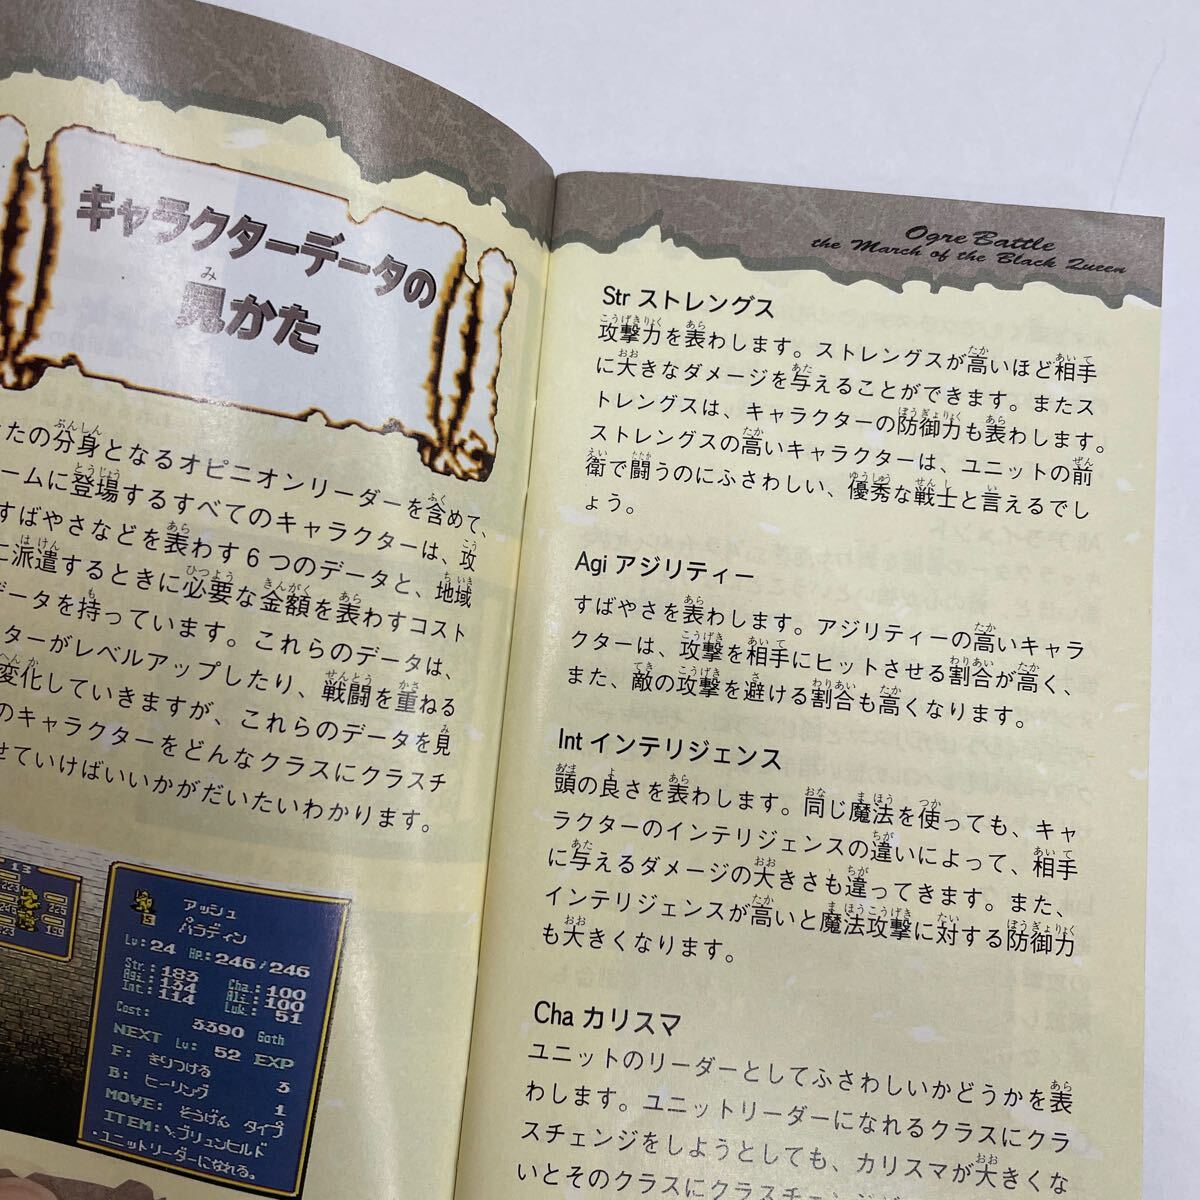 キャラクターデータの
見かた
たの分身となるオピニオンリーダーを含めて、
ームに登場するすべてのキャラクターは、攻
すばやさなどを表わす6つのデータと、地域
に派遣するときに必要な金額を表わすコスト
データを持っています。これらのデータは、
ターがレベルアップしたり、戦闘を重ねる
変化していきますが、これらのデータを見
のキャラクターをどんなクラスにクラスチ
せていけばいいかがだいたいわかります。
13
アッシュ
パラディン
Lv:24 HP:246/246
Str.:183 Cha.:100
Agi.:134 Ali.:100
Int.:114 Luk.:51
Cost: 3390 Goth
NEXT Lv: 52 EXP
F: きりつける 3
B: ヒーリング 1
MOVE: そうげん タイプ
ITEM: ブリュンヒルド
・ユニットリーダーになれる。
Ogre Battle
the March of the Black Queen
Str ストレングス
攻撃力を表わします。ストレングスが高いほど相手
に大きなダメージを与えることができます。またス
トレングスは、キャラクターの防御力も表わします。
ストレングスの高いキャラクターは、ユニットの前
衛で闘うのにふさわしい、優秀な戦士と言えるでし
ょう。
Agi アジリティー
すばやさを表わします。アジリティーの高いキャラ
クターは、攻撃を相手にヒットさせる割合が高く、
また、敵の攻撃を避ける割合も高くなります。
Int インテリジェンス
頭の良さを表わします。同じ魔法を使っても、キャ
ラクターのインテリジェンスの違いによって、相手
に与えるダメージの大きさも違ってきます。また、
インテリジェンスが高いと魔法攻撃に対する防御力
も大きくなります。
Cha カリスマ
ユニットのリーダーとしてふさわしいかどうかを表
わします。ユニットリーダーになれるクラスにクラ
スチェンジをしようとしても、カリスマが大きくな
いとそのクラスにクラスチェンジが